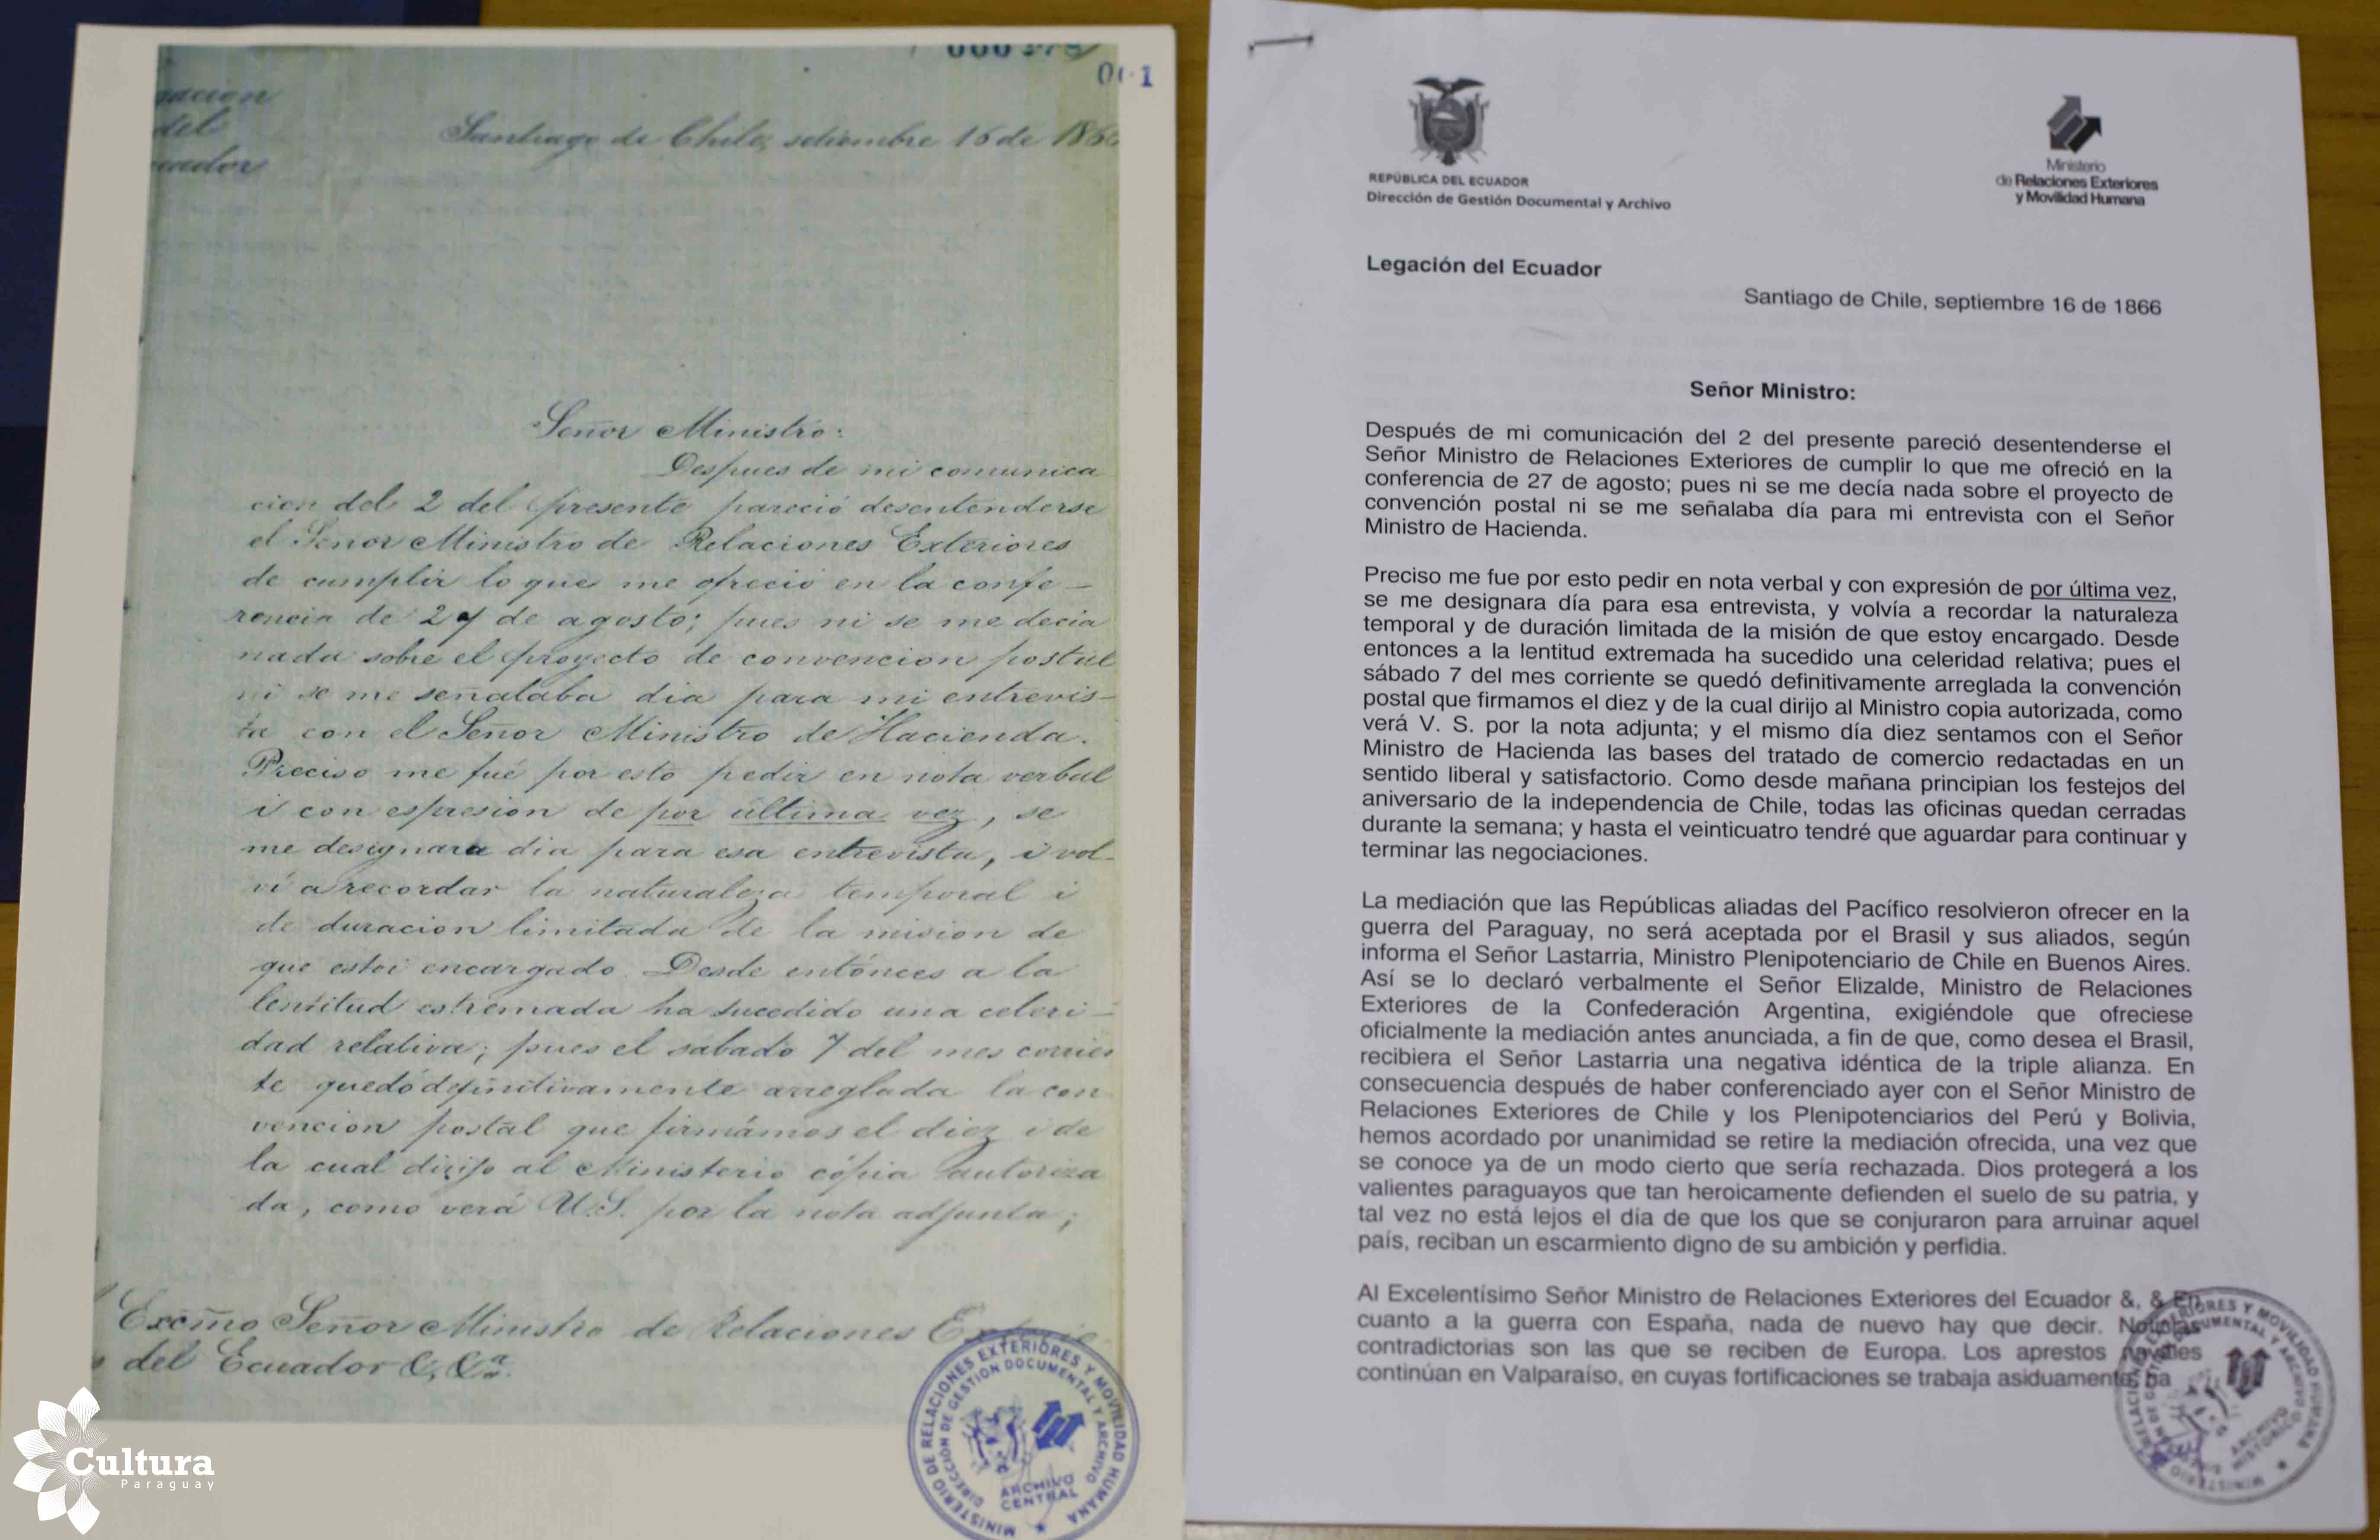 001
gacion
del
uador
Santiago de Chile, setiembre 16 de 186
Señor Ministro:
Despues de mi comunica
cion del 2 del presente pareció desentenderse
el Señor Ministro de Relaciones Exteriores
de cumplir lo que me ofreció en la confe-
rencia de 27 de agosto; pues ni se me decia
nada sobre el proyecto de convencion postal
ni se me señalaba dia para mi entrevis-
ta con el Señor Ministro de Hacienda.
Preciso me fué por esto pedir en nota verbal
i con espresion de por última vez, se
me designara dia para esa entrevista, i vol-
ví a recordar la naturaleza temporal i
de duracion limitada de la mision de
que estoi encargado. Desde entónces a la
lentitud estremada ha sucedido una celeri-
dad relativa; pues el sabado 7 del mes corrien
te quedó definitivamente arreglada la con
vencion postal que firmámos el diez i de
la cual dirijo al Ministerio cópia autoriza
da, como verá U.S. por la nota adjunta;
Excmo Señor Ministro de Relaciones
del Ecuador &, &a.
MINISTERIO DE RELACIONES EXTERIORES Y MOVILIDAD HUMANA
DIRECCIÓN DE GESTIÓN DOCUMENTAL Y ARCHIVO
ARCHIVO
CENTRAL
Cultura
Paraguay
REPÚBLICA DEL ECUADOR
Dirección de Gestión Documental y Archivo
Ministerio
de Relaciones Exteriores
y Movilidad Humana
Legación del Ecuador
Santiago de Chile, septiembre 16 de 1866
Señor Ministro:
Después de mi comunicación del 2 del presente pareció desentenderse el
Señor Ministro de Relaciones Exteriores de cumplir lo que me ofreció en la
conferencia de 27 de agosto; pues ni se me decía nada sobre el proyecto de
convención postal ni se me señalaba día para mi entrevista con el Señor
Ministro de Hacienda.
Preciso me fue por esto pedir en nota verbal y con expresión de por última vez,
se me designara día para esa entrevista, y volvía a recordar la naturaleza
temporal y de duración limitada de la misión de que estoy encargado. Desde
entonces a la lentitud extremada ha sucedido una celeridad relativa; pues el
sábado 7 del mes corriente se quedó definitivamente arreglada la convención
postal que firmamos el diez y de la cual dirijo al Ministro copia autorizada, como
verá V. S. por la nota adjunta; y el mismo día diez sentamos con el Señor
Ministro de Hacienda las bases del tratado de comercio redactadas en un
sentido liberal y satisfactorio. Como desde mañana principian los festejos del
aniversario de la independencia de Chile, todas las oficinas quedan cerradas
durante la semana; y hasta el veinticuatro tendré que aguardar para continuar y
terminar las negociaciones.
La mediación que las Repúblicas aliadas del Pacífico resolvieron ofrecer en la
guerra del Paraguay, no será aceptada por el Brasil y sus aliados, según
informa el Señor Lastarria, Ministro Plenipotenciario de Chile en Buenos Aires.
Así se lo declaró verbalmente el Señor Elizalde, Ministro de Relaciones
Exteriores de la Confederación Argentina, exigiéndole que ofreciese
oficialmente la mediación antes anunciada, a fin de que, como desea el Brasil,
recibiera el Señor Lastarria una negativa idéntica de la triple alianza. En
consecuencia después de haber conferenciado ayer con el Señor Ministro de
Relaciones Exteriores de Chile y los Plenipotenciarios del Perú y Bolivia,
hemos acordado por unanimidad se retire la mediación ofrecida, una vez que
se conoce ya de un modo cierto que sería rechazada. Dios protegerá a los
valientes paraguayos que tan heroicamente defienden el suelo de su patria, y
tal vez no está lejos el día de que los que se conjuraron para arruinar aquel
país, reciban un escarmiento digno de su ambición y perfidia.
Al Excelentísimo Señor Ministro de Relaciones Exteriores del Ecuador &, & En
cuanto a la guerra con España, nada de nuevo hay que decir. Noticias
contradictorias son las que se reciben de Europa. Los aprestos navales
continúan en Valparaíso, en cuyas fortificaciones se trabaja asiduamente; ha
ARCHIVO
HISTÓRICO